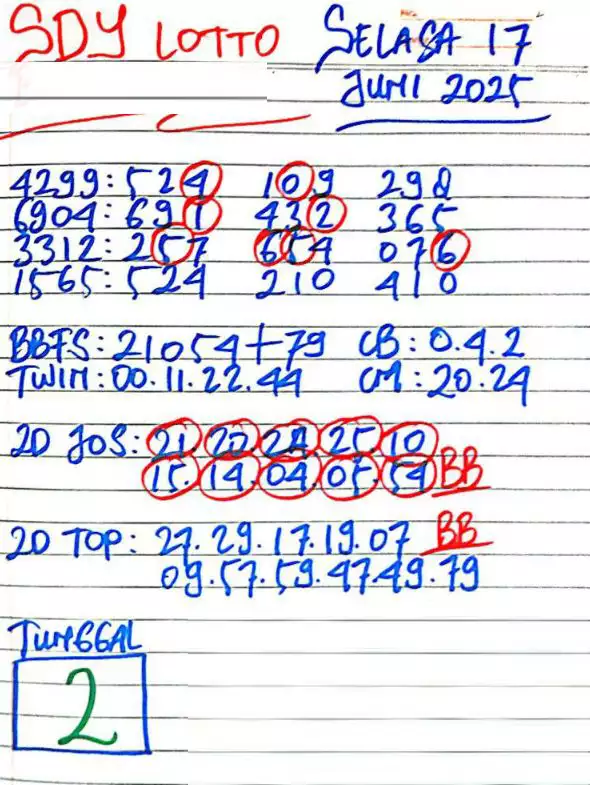 SDY LOTTO SELASA 17
JUNI 2025
4299: 524 109 298
6904: 691 432 365
3312: 257 654 076
1565: 524 210 410
BBFS: 21054+79 CB: 0.4.2
TWIN: 00.11.22.44 CM: 20.24
2D JOS: 21.20.24.25.10
15.14.04.05.54 BB
2D TOP: 27.29.17.19.07 BB
09.57.59.47.49.79
TUNGGAL
2